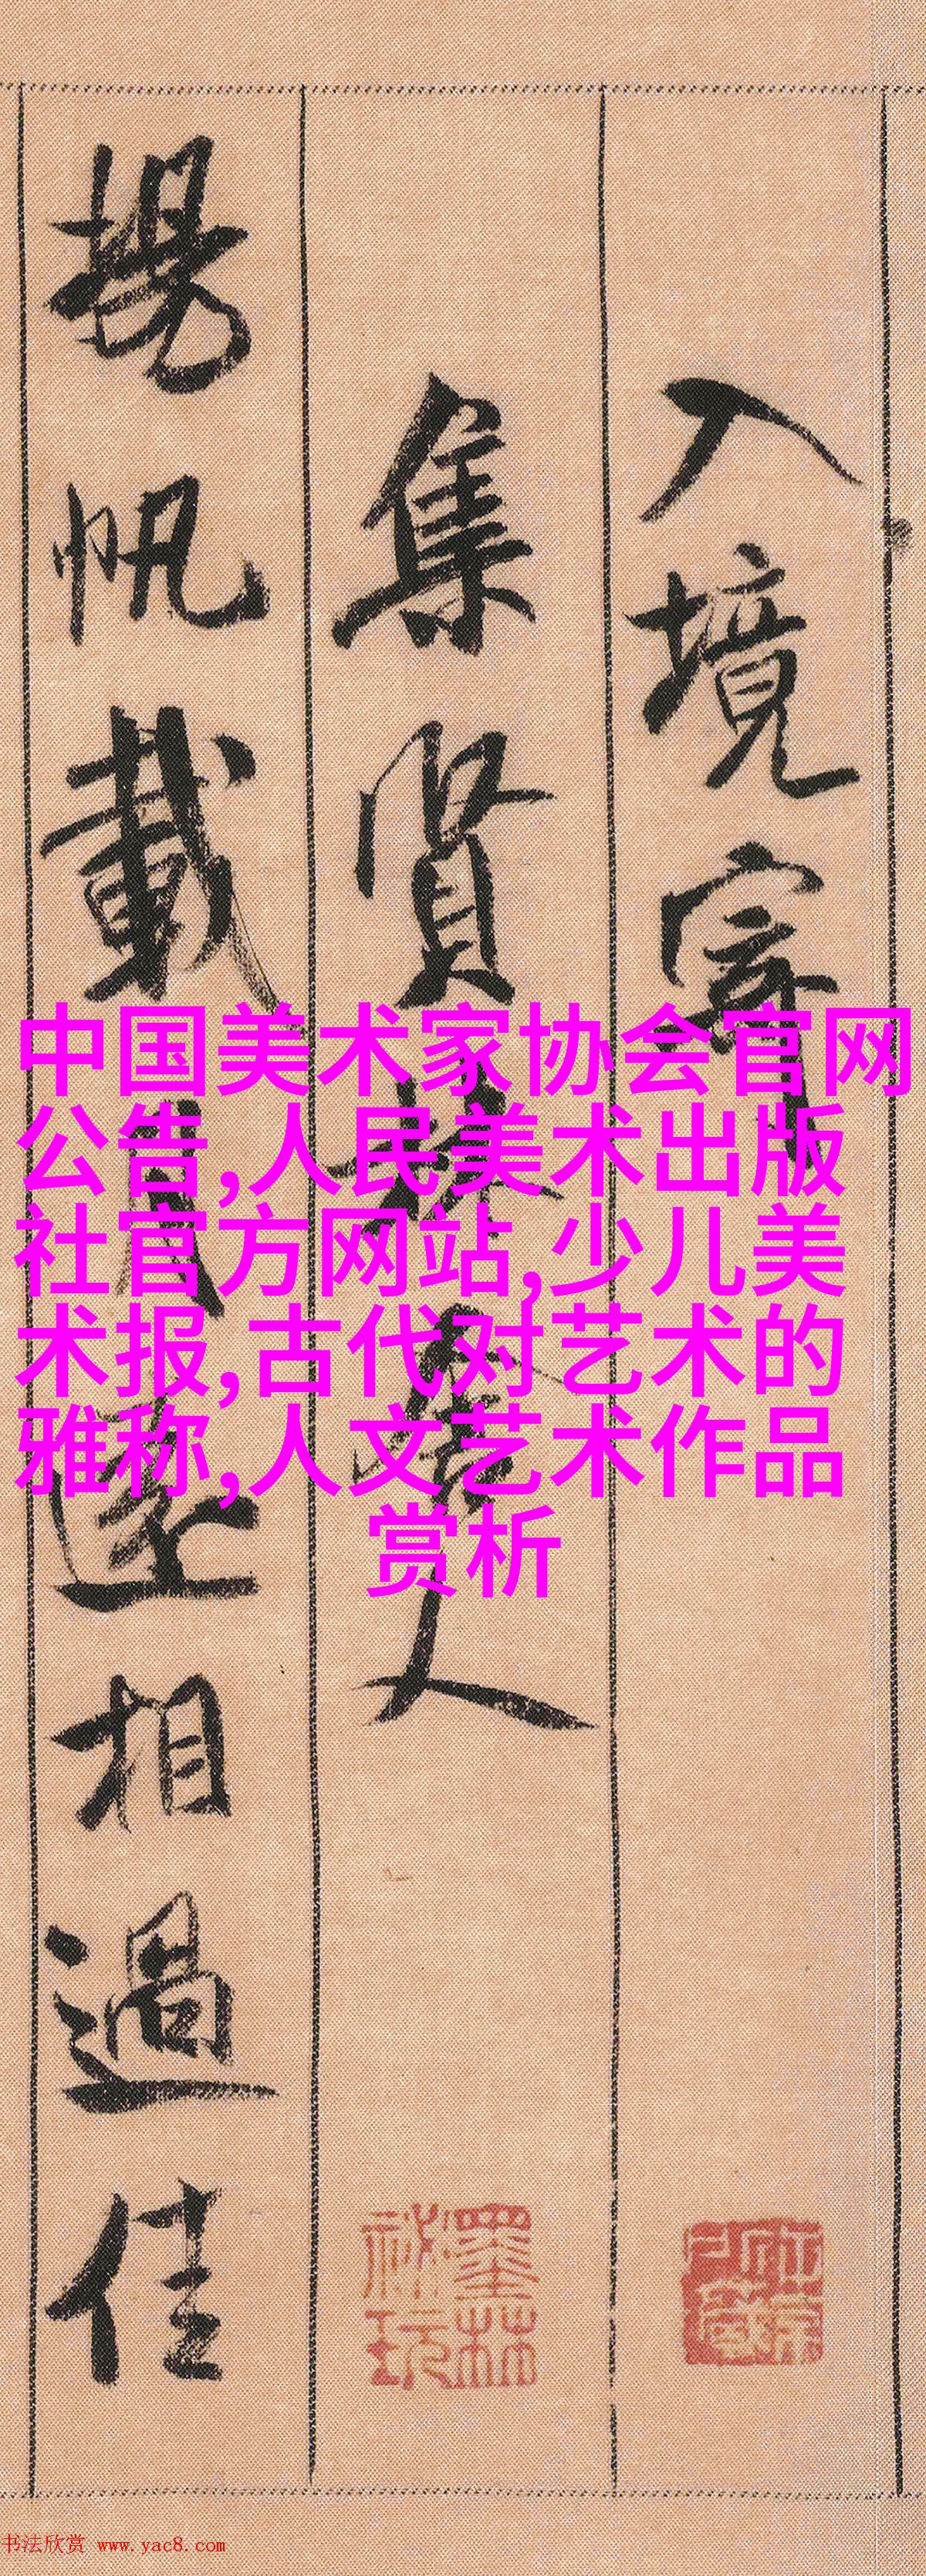 入境寄
集賢林舍人
揚帆載月遠相過佳
中国美术家协会官网
公告,人民美术出版
社官方网站,少儿美
术报,古代对艺术的
雅称,人文艺术作品
赏析
墨林
祕玩
书法欣赏 www.yac8.com